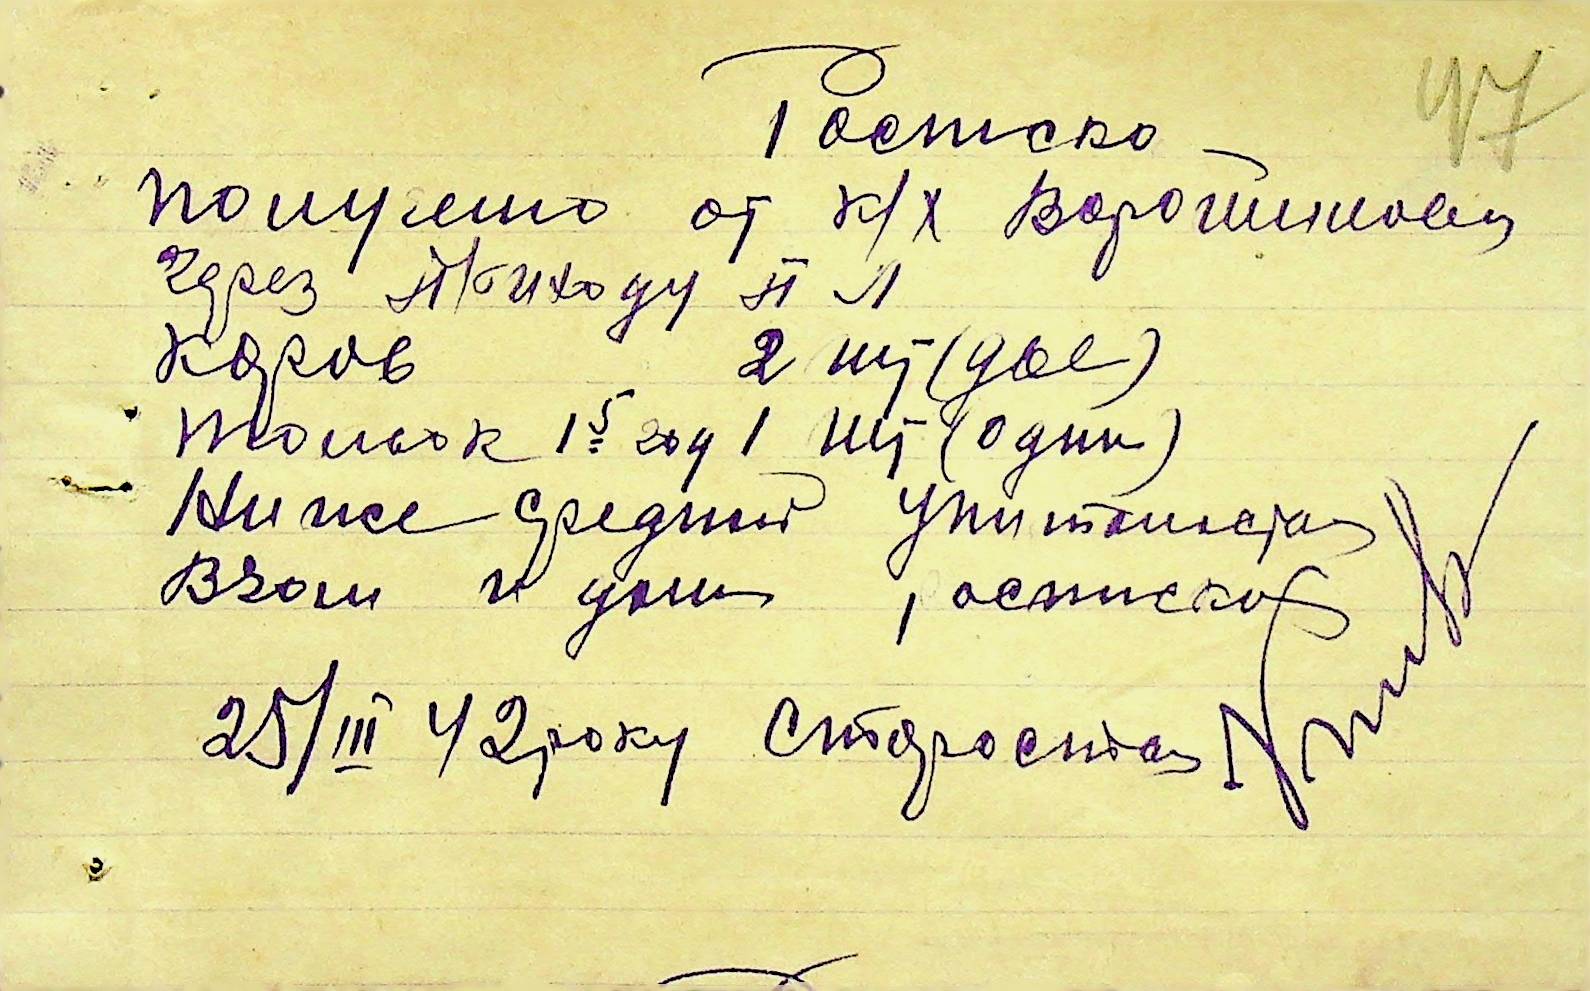 47
Росписка
Получено от к/х Ворошилова
Через Приходу П Л
Коров 2 шт (две)
Тёлок 1 5 год 1 шт (один)
Ниже средней упитаности
В чом и даю росписку
25/III 42 року Староста